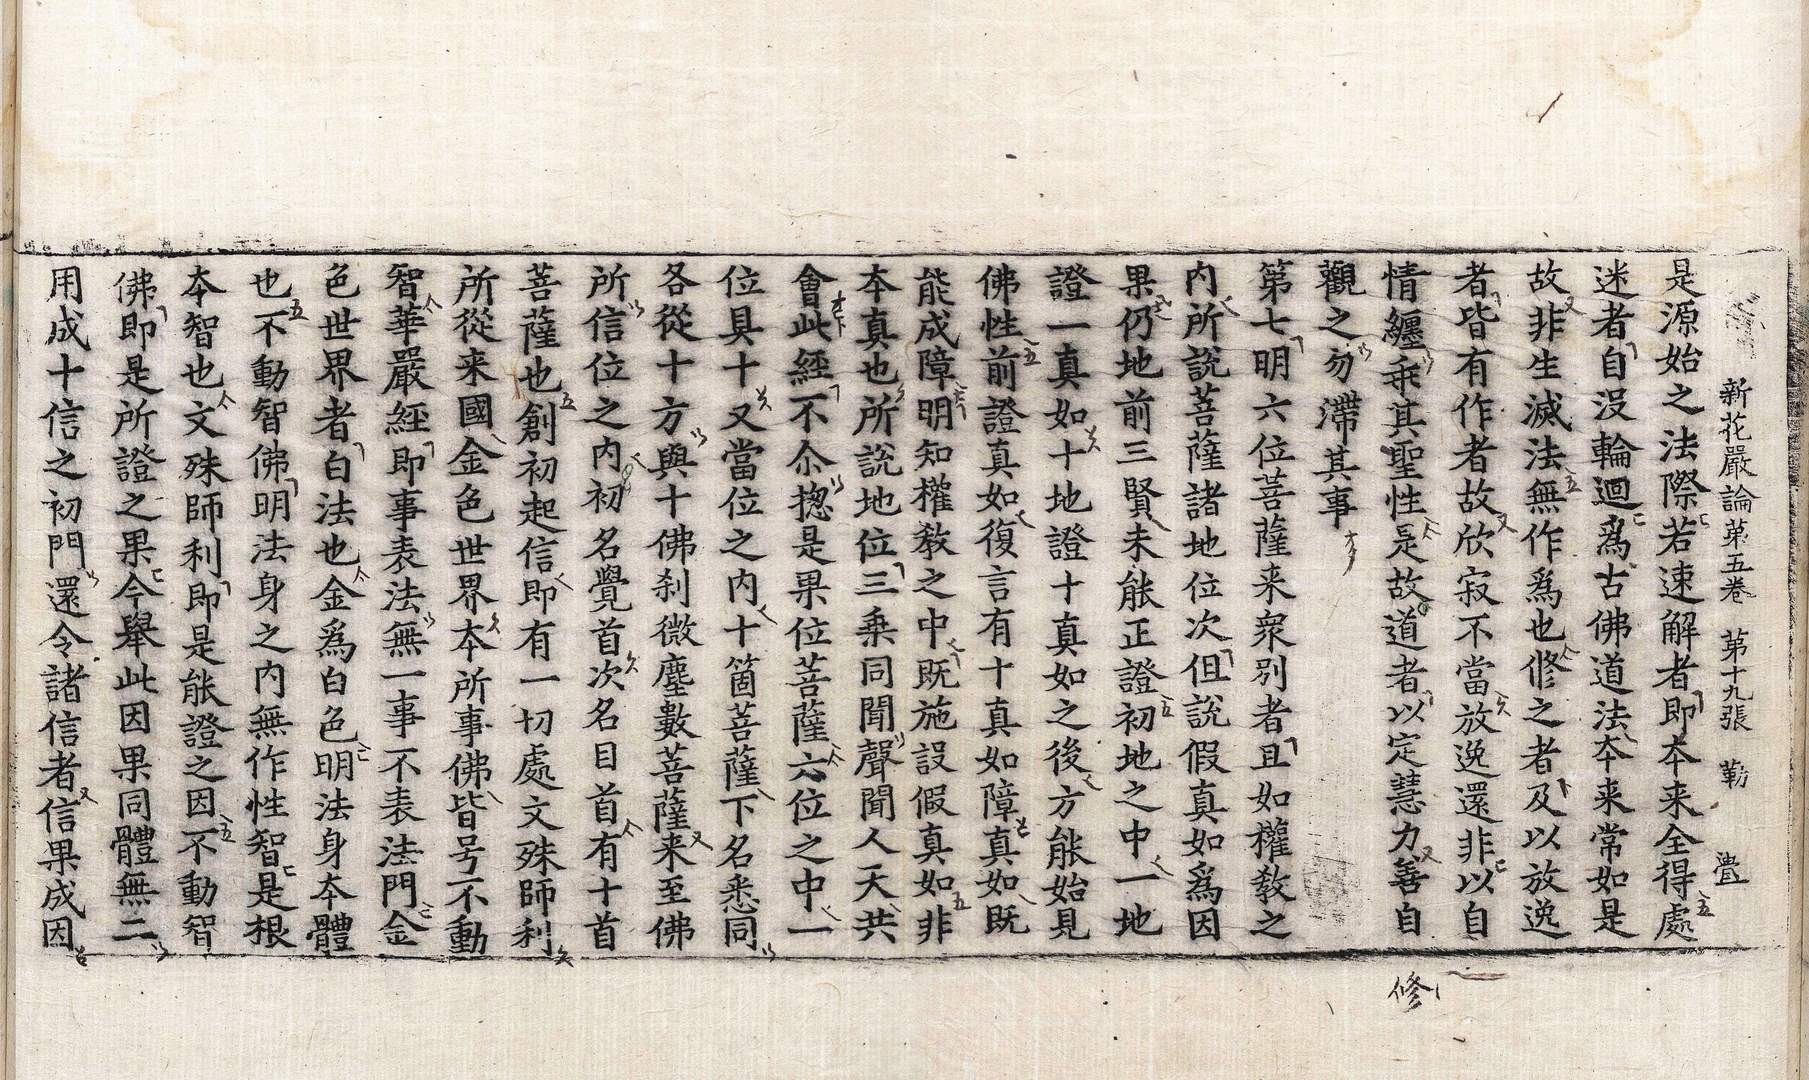 新花嚴論第五卷 第十九張 勒
是源始之法際若速解者即本来全得處
迷者自沒輪迴爲古佛道法本来常如是
故非生滅法無作爲也修之者及以放逸
者皆有作者故欣寂不當放逸還非以自
情纏乖其聖性是故道者以定慧力善自
觀之勿滯其事
第七明六位菩薩来衆別者且如權敎之
内所說菩薩諸地位次但說假真如爲因
果仍地前三賢未能正證初地之中一地
證一真如十地證十真如之後方能始見
佛性前證真如復言有十真如障真如既
能成障明知權敎之中既施設假真如非
本真也所說地位三乗同聞聲聞人天共
會此經不尒揔是果位菩薩六位之中一
位具十又當位之内十箇菩薩下名悉同
各從十方與十佛刹微塵數菩薩来至佛
所信位之内初名覺首次名目首有十首
菩薩也創初起信即有一切處文殊師利
所從来國金色世界本所事佛皆号不動
智華嚴經即事表法無一事不表法門金
色世界者白法也金爲白色明法身本體
也不動智佛明法身之内無作性智是根
本智也文殊師利即是能證之因不動智
佛即是所證之果今舉此因果同體無二
用成十信之初門還令諸信者信果成因
修